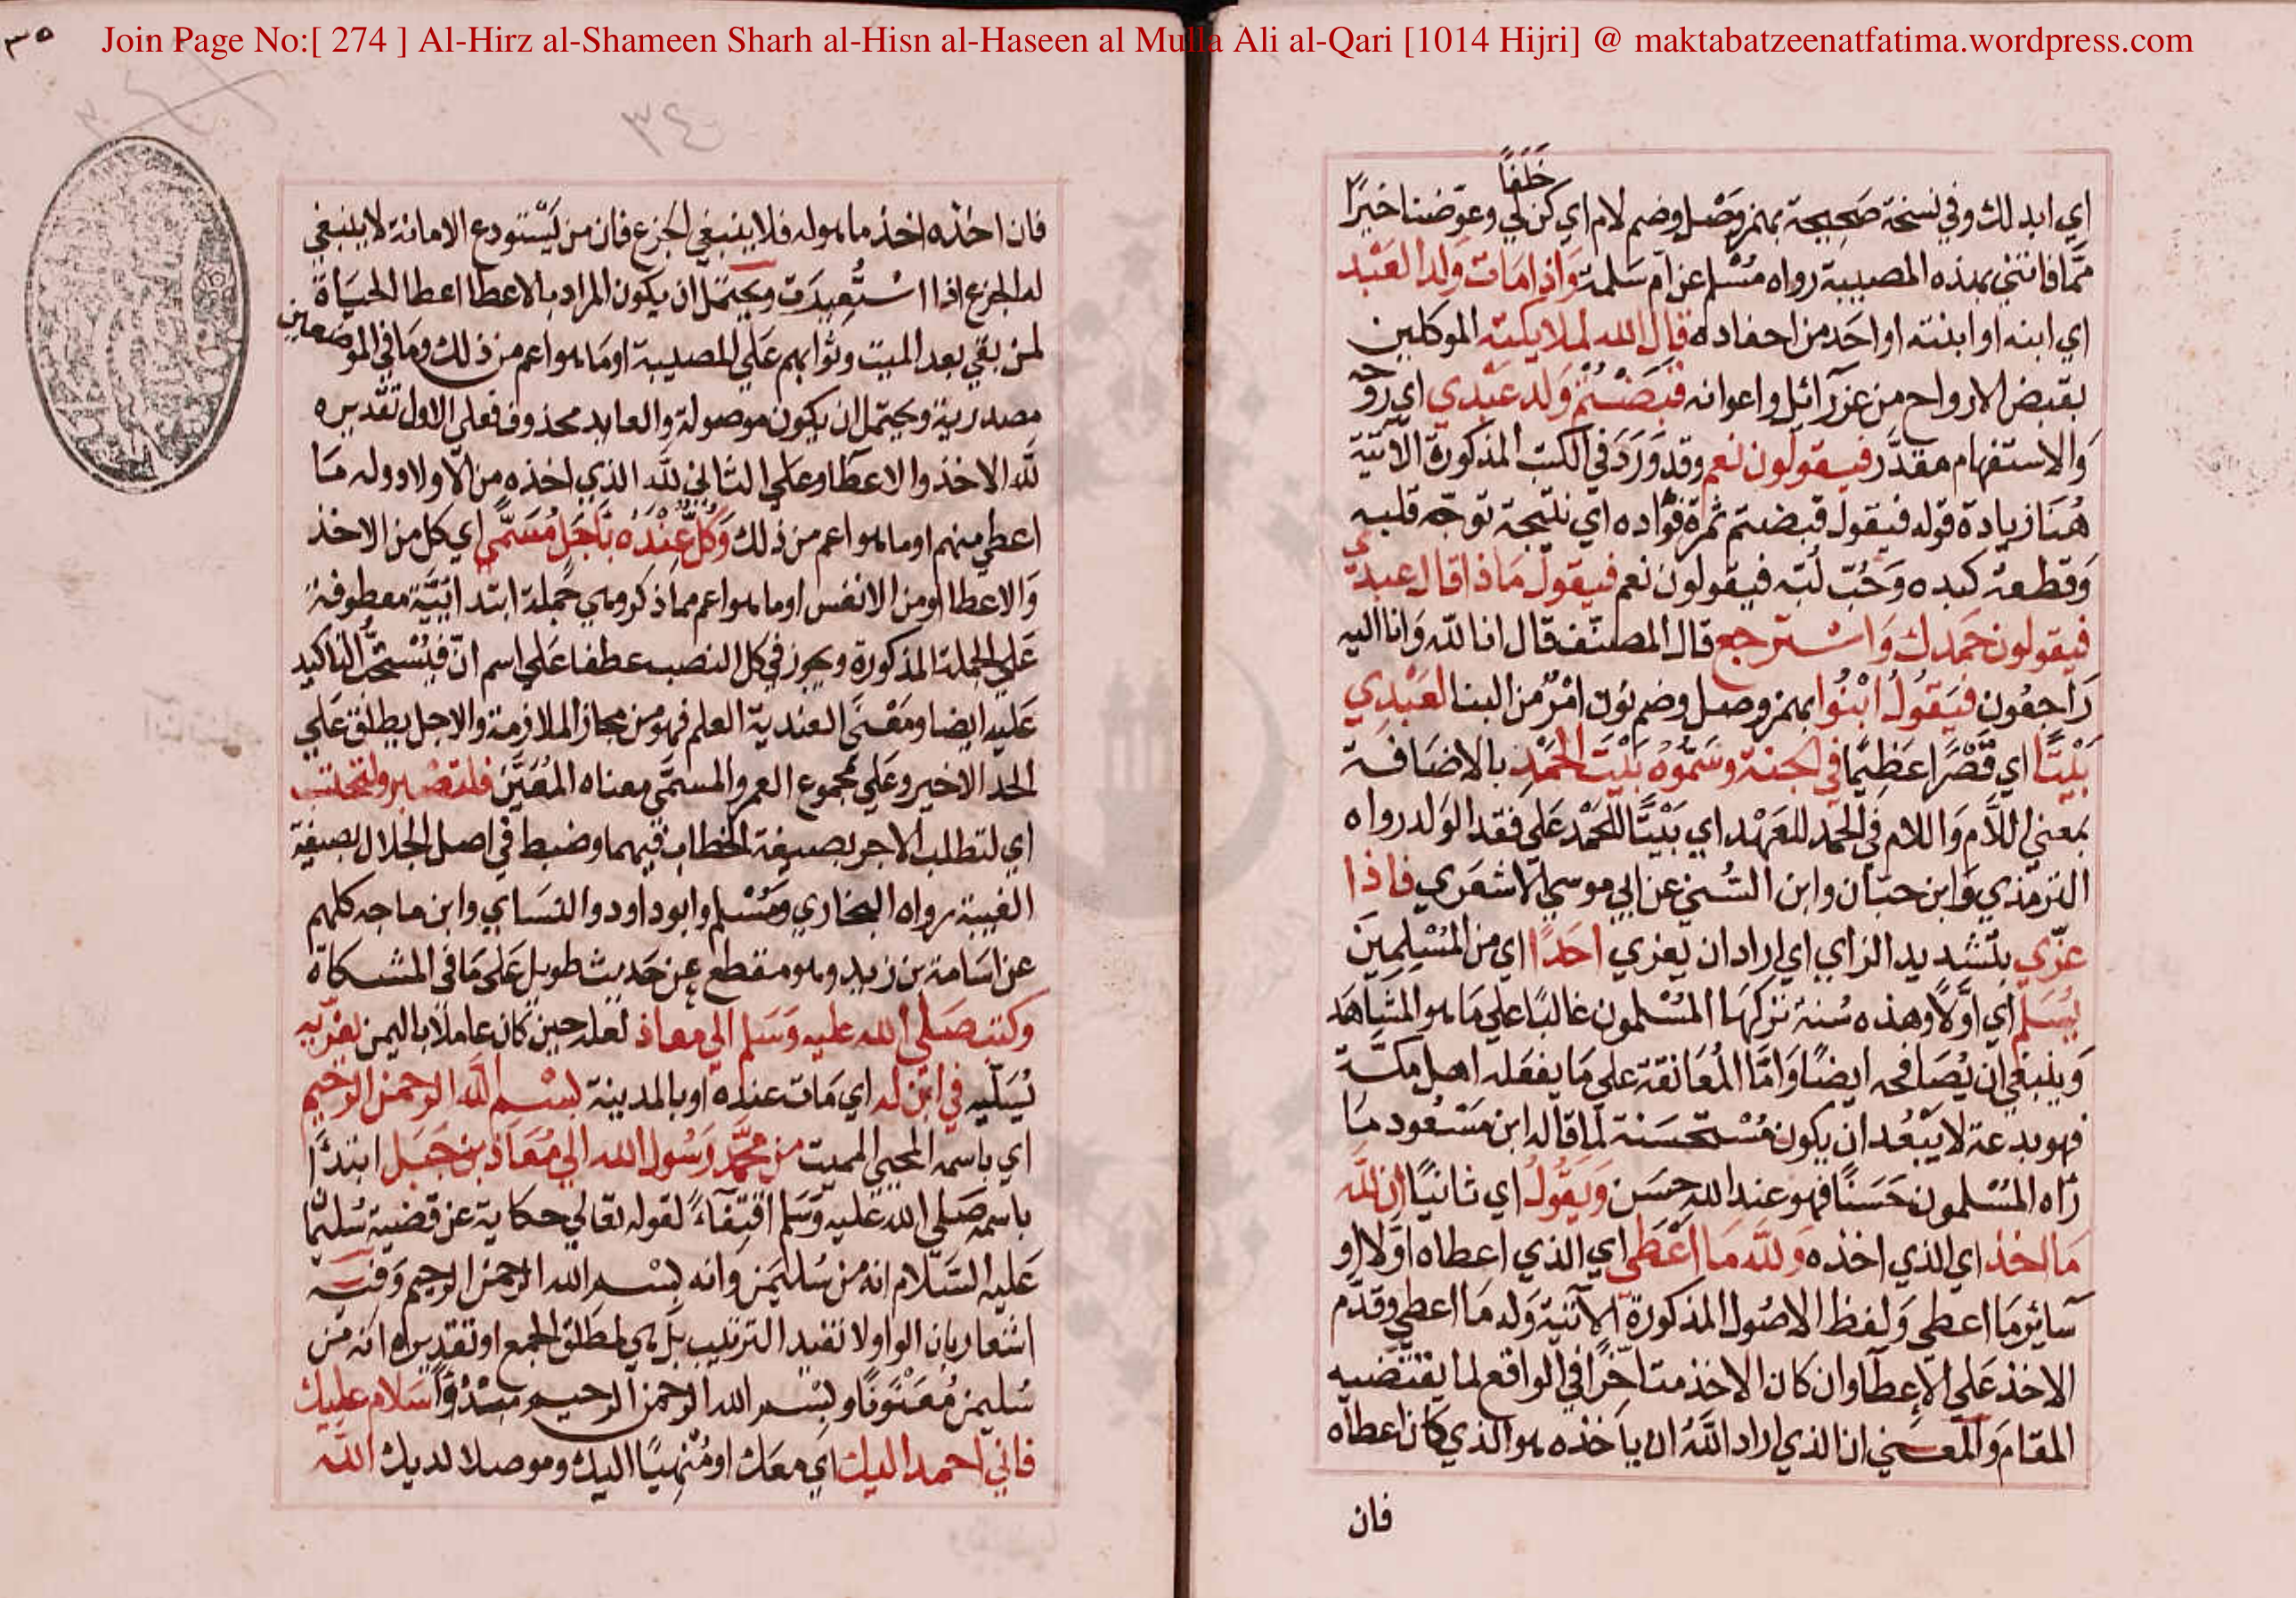 Join Page No:[ 274 ] Al-Hirz al-Shameen Sharh al-Hisn al-Haseen al Mulla Ali al-Qari [1014 Hijri] @ maktabatzeenatfatima.wordpress.com
خَلَفًا
اي ابدلك وفي نسخة صَحِيحة بهمز وصْل وضم لام اي كن لي وعوّضنا خيرًا
ممّا فاتنى بهذه المصيبة رواه مُسْلم عن ام سَلمة وَاذا مَات ولد العَبْد
اي ابنه او ابنته او احَد من احفاده قال الله لملايكته الموكلين
بقبض الارواح من عزرآئيل واعوانه قبَضْتُمْ وَلد عَبْدي اي روحه
وَالاستفهام مقدّر فيقولون نعم وقد وَرَدَ في الكتب المذكورة الآتية
هُنَا زيادة قوله فيقول قبضتم ثمرة فؤاده اي نتيجة توجّه قلبه
وَقطعة كبده وَحُبّ لبّه فيقولون نعم فيقول مَاذا قال عبدي
فيقولون حَمدك وَاسْترجع قال المصنّف قال انا للّه وَانا اليه
رَاجعُون فَيَقُولُ ابْنُوا بهمز وصل وضم نون امْرٌ من البنا لعَبْدِي
بَيْتًا اي قَصْرًا عَظِيمًا في الجنة وسَمُّوهُ بَيْتَ الحَمْدِ بالاضَافة
بمعنى اللاَّم وَاللام في الحَمد للعَهْد اي بَيْتًا للحَمْد عَلى فقد الوَلد رواه
الترمذي وَابن حبّان وابن السُّني عن ابي موسى الاشعَري فاذا
عزّي بتشديد الزاي اي اراد ان يعزي احَدًا اي من المُسْلِمِينَ
يُسَلّم اي اوّلاً وهذه سُنة تركهَا المُسْلمون غالبًا علي مَا هو المشَاهَد
وَينبغي ان يُصَافحه ايضًا وَامَّا المُعَانقة علي مَا يفعَله اهل مكّة
فهو بدعة لا يَبْعُد ان يكون مُسْتحسَنة لما قاله ابن مَسْعُود مَا
رَاه المُسْلمون حَسَنًا فهو عند الله حسَن وَيَقُولُ اي ثانيًا ان للّه
مَا اخذ اي الذي اخذه وَللّه مَا اَعْطى اي الذي اعطاه اوّلا او
سَآئر مَا اعطى وَلفظ الاصُول المذكورة الآتية وَله مَا اعطى وقدّم
الاخذ عَلي الاِعطا وان كان الاخذ متاخّرًا في الواقع لما يقتضيه
المقام وَالمعنى ان الذي اراد اللّهُ ان ياخذه هو الذي كان اعطاه
فان
٣٥
٣٤
فان اخذه اخذ ما هو له فلا ينبغي الجزع فان من يَسْتودع الامانة لا ينبغي
له الجزع اذا اسْتُعِيدَت ويحتمل ان يكون المراد بالاعطا اعطا الحيَاة
لمن بقي بعد الميت وثوابهم عَلي المصيبة او مَا هو اعم من ذلك وَمَا في الموضعين
مصدرية ويحتمل ان يكون موصولة والعايد محذوف فعلى الاول تقديره
للّه الاخذ والاعطا وعلي الثاني للّه الذي اخذه من الاولاد وله مَا
اعطى منهم او ما هو اعم من ذلك وَكُلٌّ عِنْدَهُ بِاَجَلٍ مُسَمًّى اي كل من الاخذ
وَالاعطا او من الانفس او ما هو اعم مما ذكر وهي جُملة ابتدائيّة معطوفة
عَلي الجملة المذكورة ويجوز في كل النصب عطفا عَلي اسم انّ فيُسْتحبُّ التاكيد
عَليه ايضا ومَعْنَى العندية العلم فهو من مجاز الملازمة والاجل يطلق عَلي
الحد الاخير وعَلي مجموع العمر والمسمّى معناه المُعَيَّن فلتصبر ولتحتسب
اي لتطلب الاجر بصيغة الخطاب فيهما وضبط في اصل الجلال بصيغة
الغيبة رواه البخاري ومُسْلم وابوداود والنسَاي وابن ماجه كلهم
عن اسَامة بن زيد وهو مقطع من حَديث طويل عَلى مَا في المشكاة
وكتب صَلى الله عليه وَسَلم الي معاذ لعله حين كان عاملا باليمن يعزّيه
يُسَلّيه في ابْن له اي مَات عنده او بالمدينة بسْم اللّه الرحمن الرحيم
اي باسمه المحيي المميت من محمَّد رَسُول الله الي مُعَاذ بن جَبَل ابتدأ
باسمه صَلى الله عَليه وَسَلم اقتِفَآءً لقوله تعَالي حكاية عن قضية سُليمَا
عَليه السَّلام انه من سُليمَن وانه بسْم الله الرحمن الرحيم وَفيه
اشعار بان الواو لا تفيد الترتيب بل هي لمطلق الجمع او تقديره انه من
سُليمن مُعَنْوَنًا وبسْم الله الرحمن الرحيم مبْدُوًّا سَلام عليك
فاني احمد اليك اي معك او مُنْهِيًا اليك وموصلا لديك اللّه